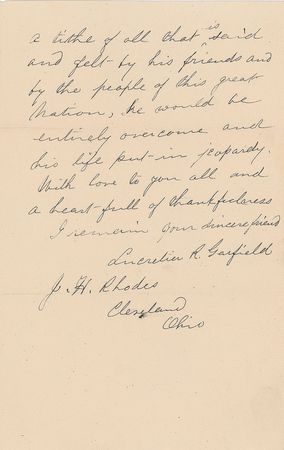 a tithe of all that is said
and felt by his friends and
by the people of this great
Nation, he would be
entirely overcome and
his life put in jeopardy.
With love to you all and
a heart full of thankfulness
I remain your sincere friend
Lucretia R. Garfield
J. H. Rhodes
Cleveland
Ohio